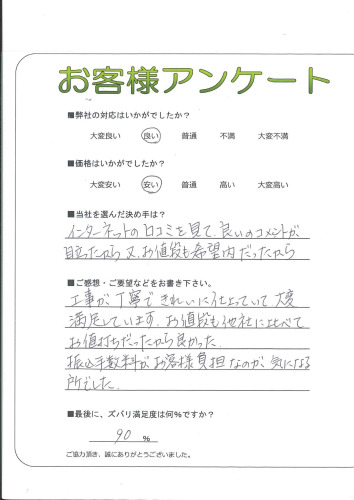 お客様アンケート
■弊社の対応はいかがでしたか？
大変良い 良い 普通 不満 大変不満
■価格はいかがでしたか？
大変安い 安い 普通 高い 大変高い
■当社を選んだ決め手は？
インターネットの口コミを見て、良いのコメントが
目立ったから又、お値段も希望内だったから
■ご感想・ご要望などをお書き下さい。
工事が、丁寧できれいに仕上っていて大変
満足しています。お値段も他社に比べて
お値打ちだったから良かった。
振込手数料がお客様負担なのが、気になる
所でした。
■最後に、ズバリ満足度は何%ですか？
90 %
ご協力頂き、誠にありがとうございました。